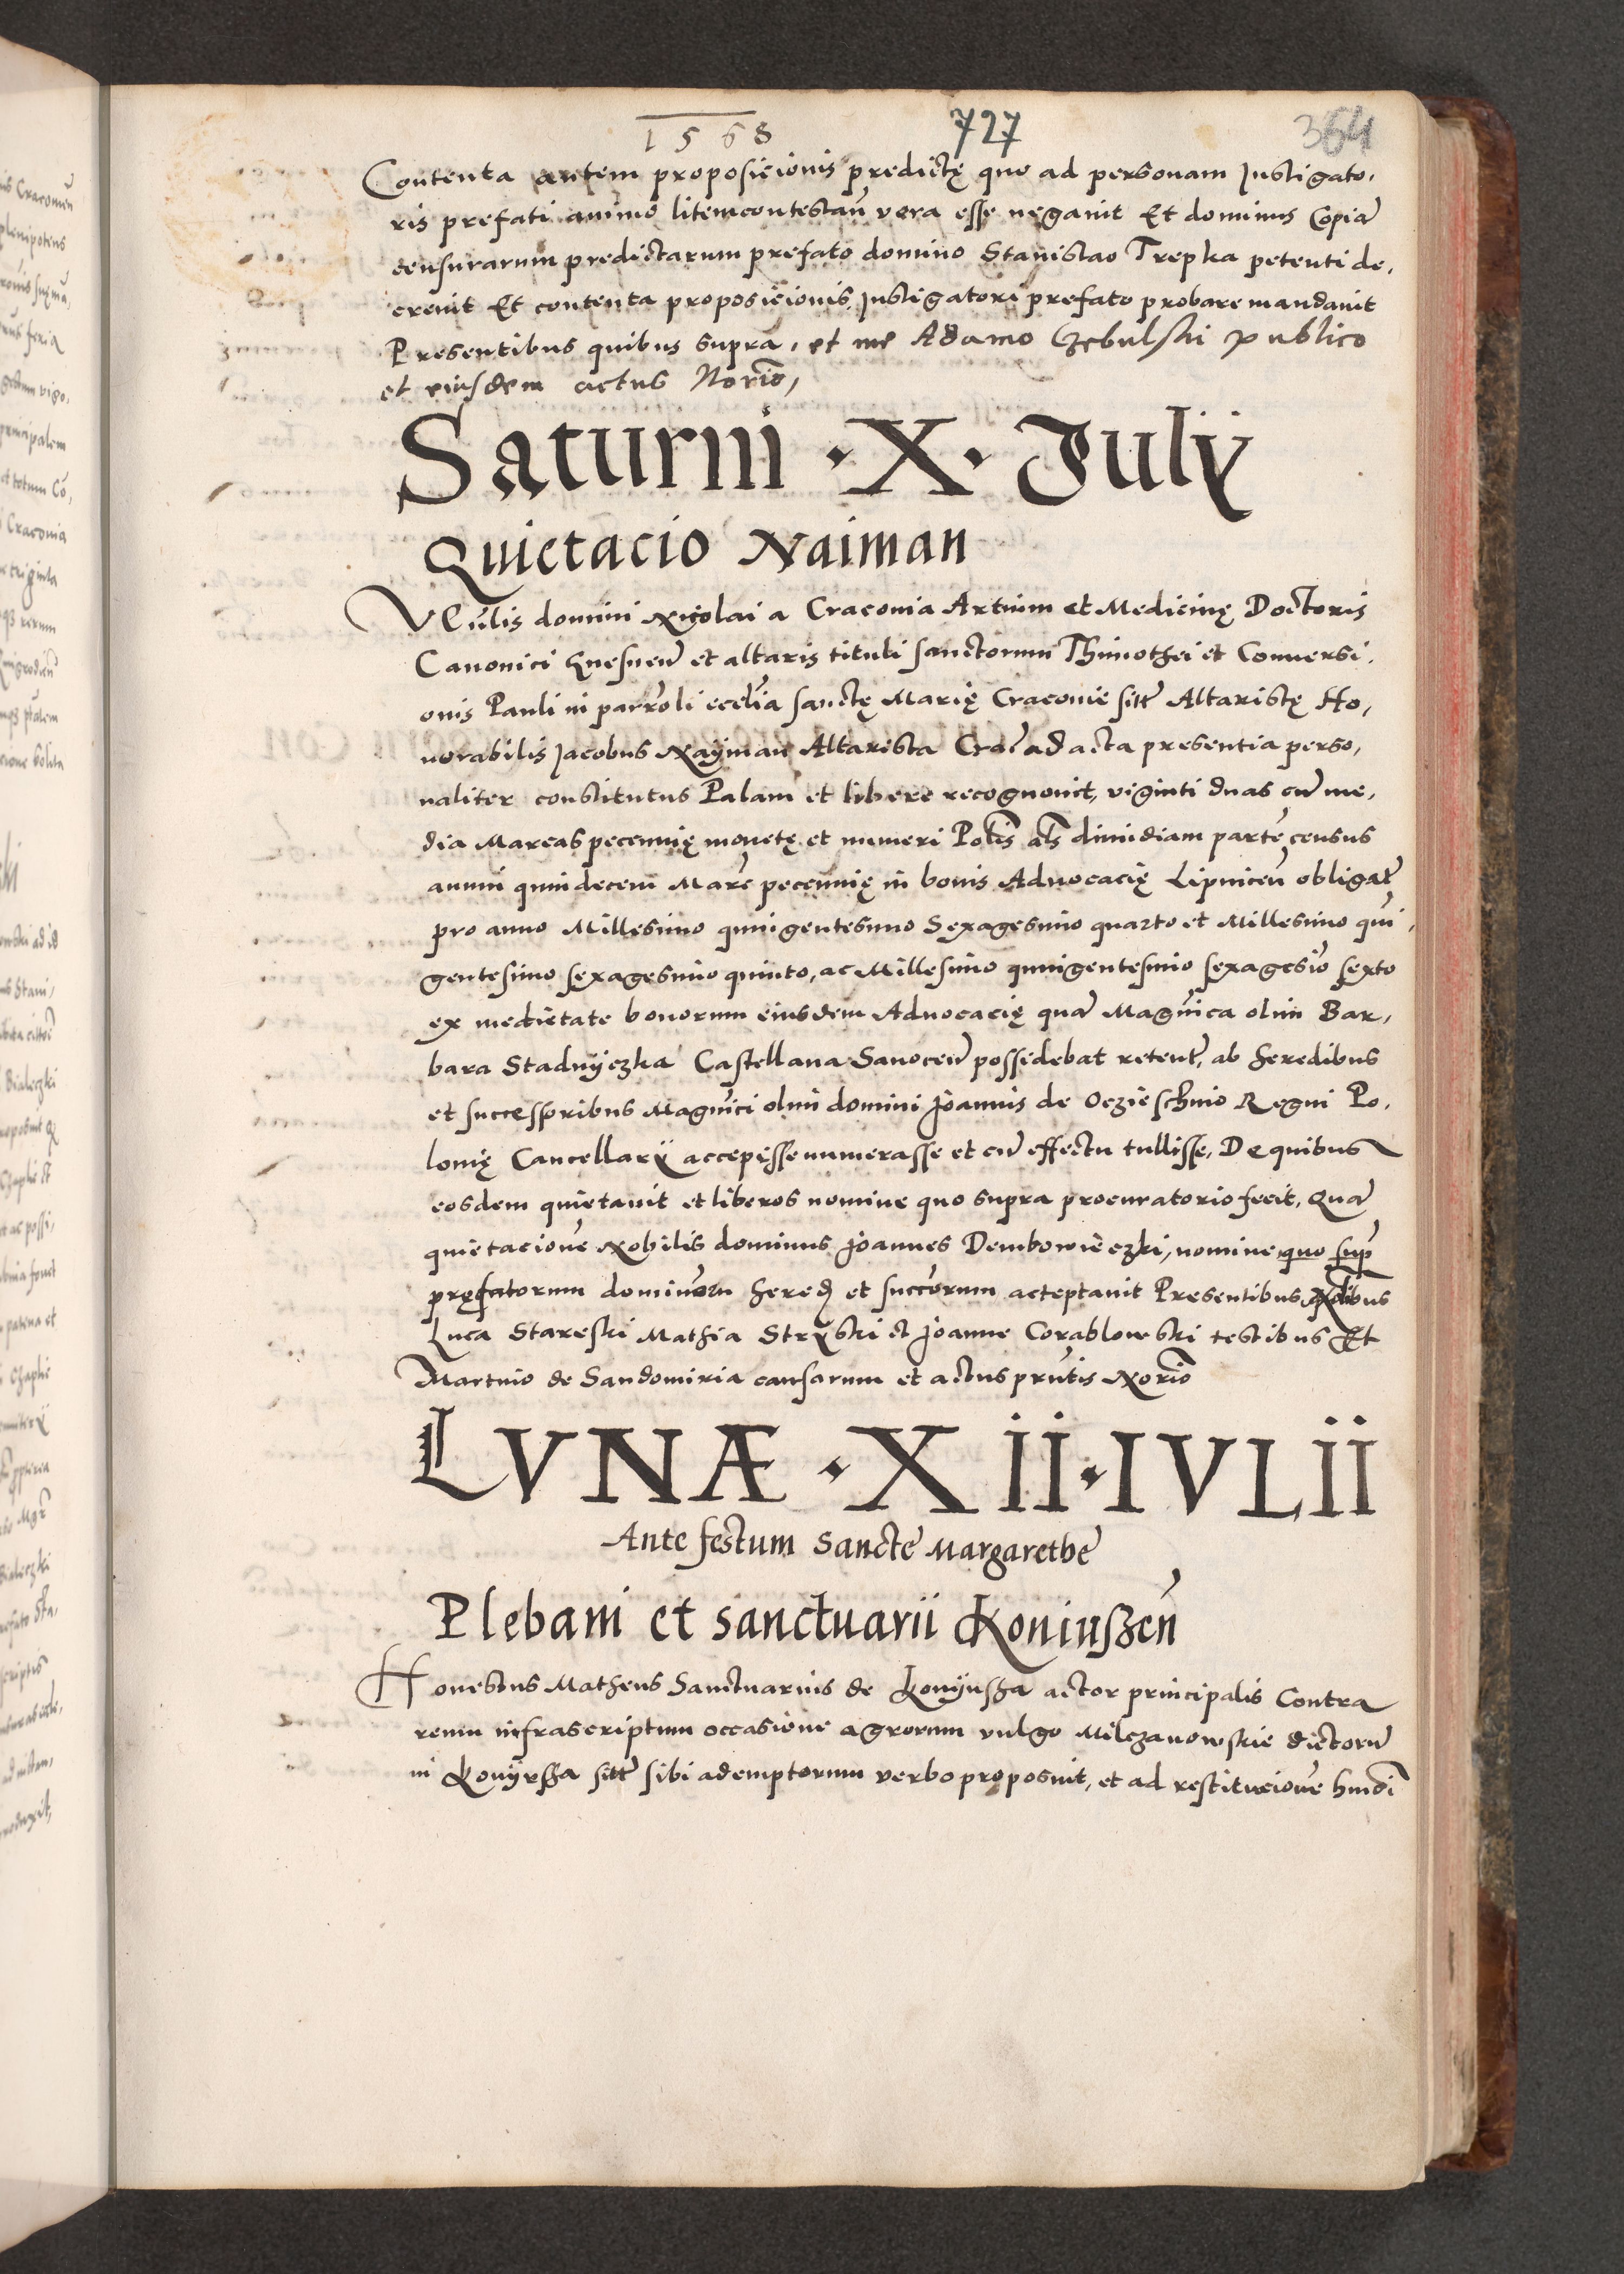 1568 727 364
Contenta autem proposicionis predictę quo ad personam Instigato,
ris prefati animo litemcontestan̄ vera esse negavit Et dominus Copiā
censurarum predictarum prefato domino Stanislao Trepka petenti de,
crevit Et contenta proposicionis Instigatori prefato probare mandavit
Presentibus quibus supra, et me Adamo Czebulski publico
et eiusdem actus Norio,
Saturni · X · Julÿ
Quietacio Naiman
Vēn̄lis domini Nicolai a Craconia Artium et Medicinę Doctoris
Canonici Gnesnen̄ et altaris tituli sanctorum Thimothei et Conversi,
onis Pauli in parroli eccl̄ia sanctę Marię Craconie sitt̄ Altaristę Ho,
norabilis Jacobus Naÿman Altarista Crac̄ ad acta presentia perso,
naliter constitutus Palam et libere recognovit, viginti duas cū me,
dia Marcas pecunnię monetę et numeri Polis als dimidiam partē census
annui quindecem Marc̄ pecunnię in bonis Advocacię Lipnicen̄ obligat̄
pro anno Millesimo quingentesimo Sexagesimo quarto et Millesimo quī,
gentesimo sexagesimo quinto, ac Millesimo quingentesimo sexagesīo sexto
ex medietate bonorum eiusdem Advocacię quā Magnica olim Bar,
bara Stadnÿczka Castellana Sanocen̄ possidebat retent̄, ab heredibus
et successoribus Magnici olim domini Joannis de Oczieschino Regni Po,
lonię Cancellarÿ accepisse numerasse et cū effectu tullisse, De quibus
eosdem quietavit et liberos nomine quo supra procuratorio fecit, Quā
quietacionē Nobilis dominus Joannes Dembowieczki, nomine quo sup̄
pręfatorum dominōrū hered̄ et succōrum acteptavit Presentibus Nobilibus
Luca Stareski Mathia Strÿski et Joanne Corablowski testibus Et
Martino de Sandomiria causarum et actus prn̄tis Norio
LVNÆ · XII · IVLII
Ante festum Sanctē Margarethē
Plebani et sanctuarii Koniuszen̄
Honestus Matheus Sanctuarius de Konÿusza actor principalis Contra
reum infrascriptum occasione agrorum vulgo Milczanowskie dictorū
in Konÿusza sitt̄ sibi ademptorum verbo proposuit, et ad restitucionē hmōi